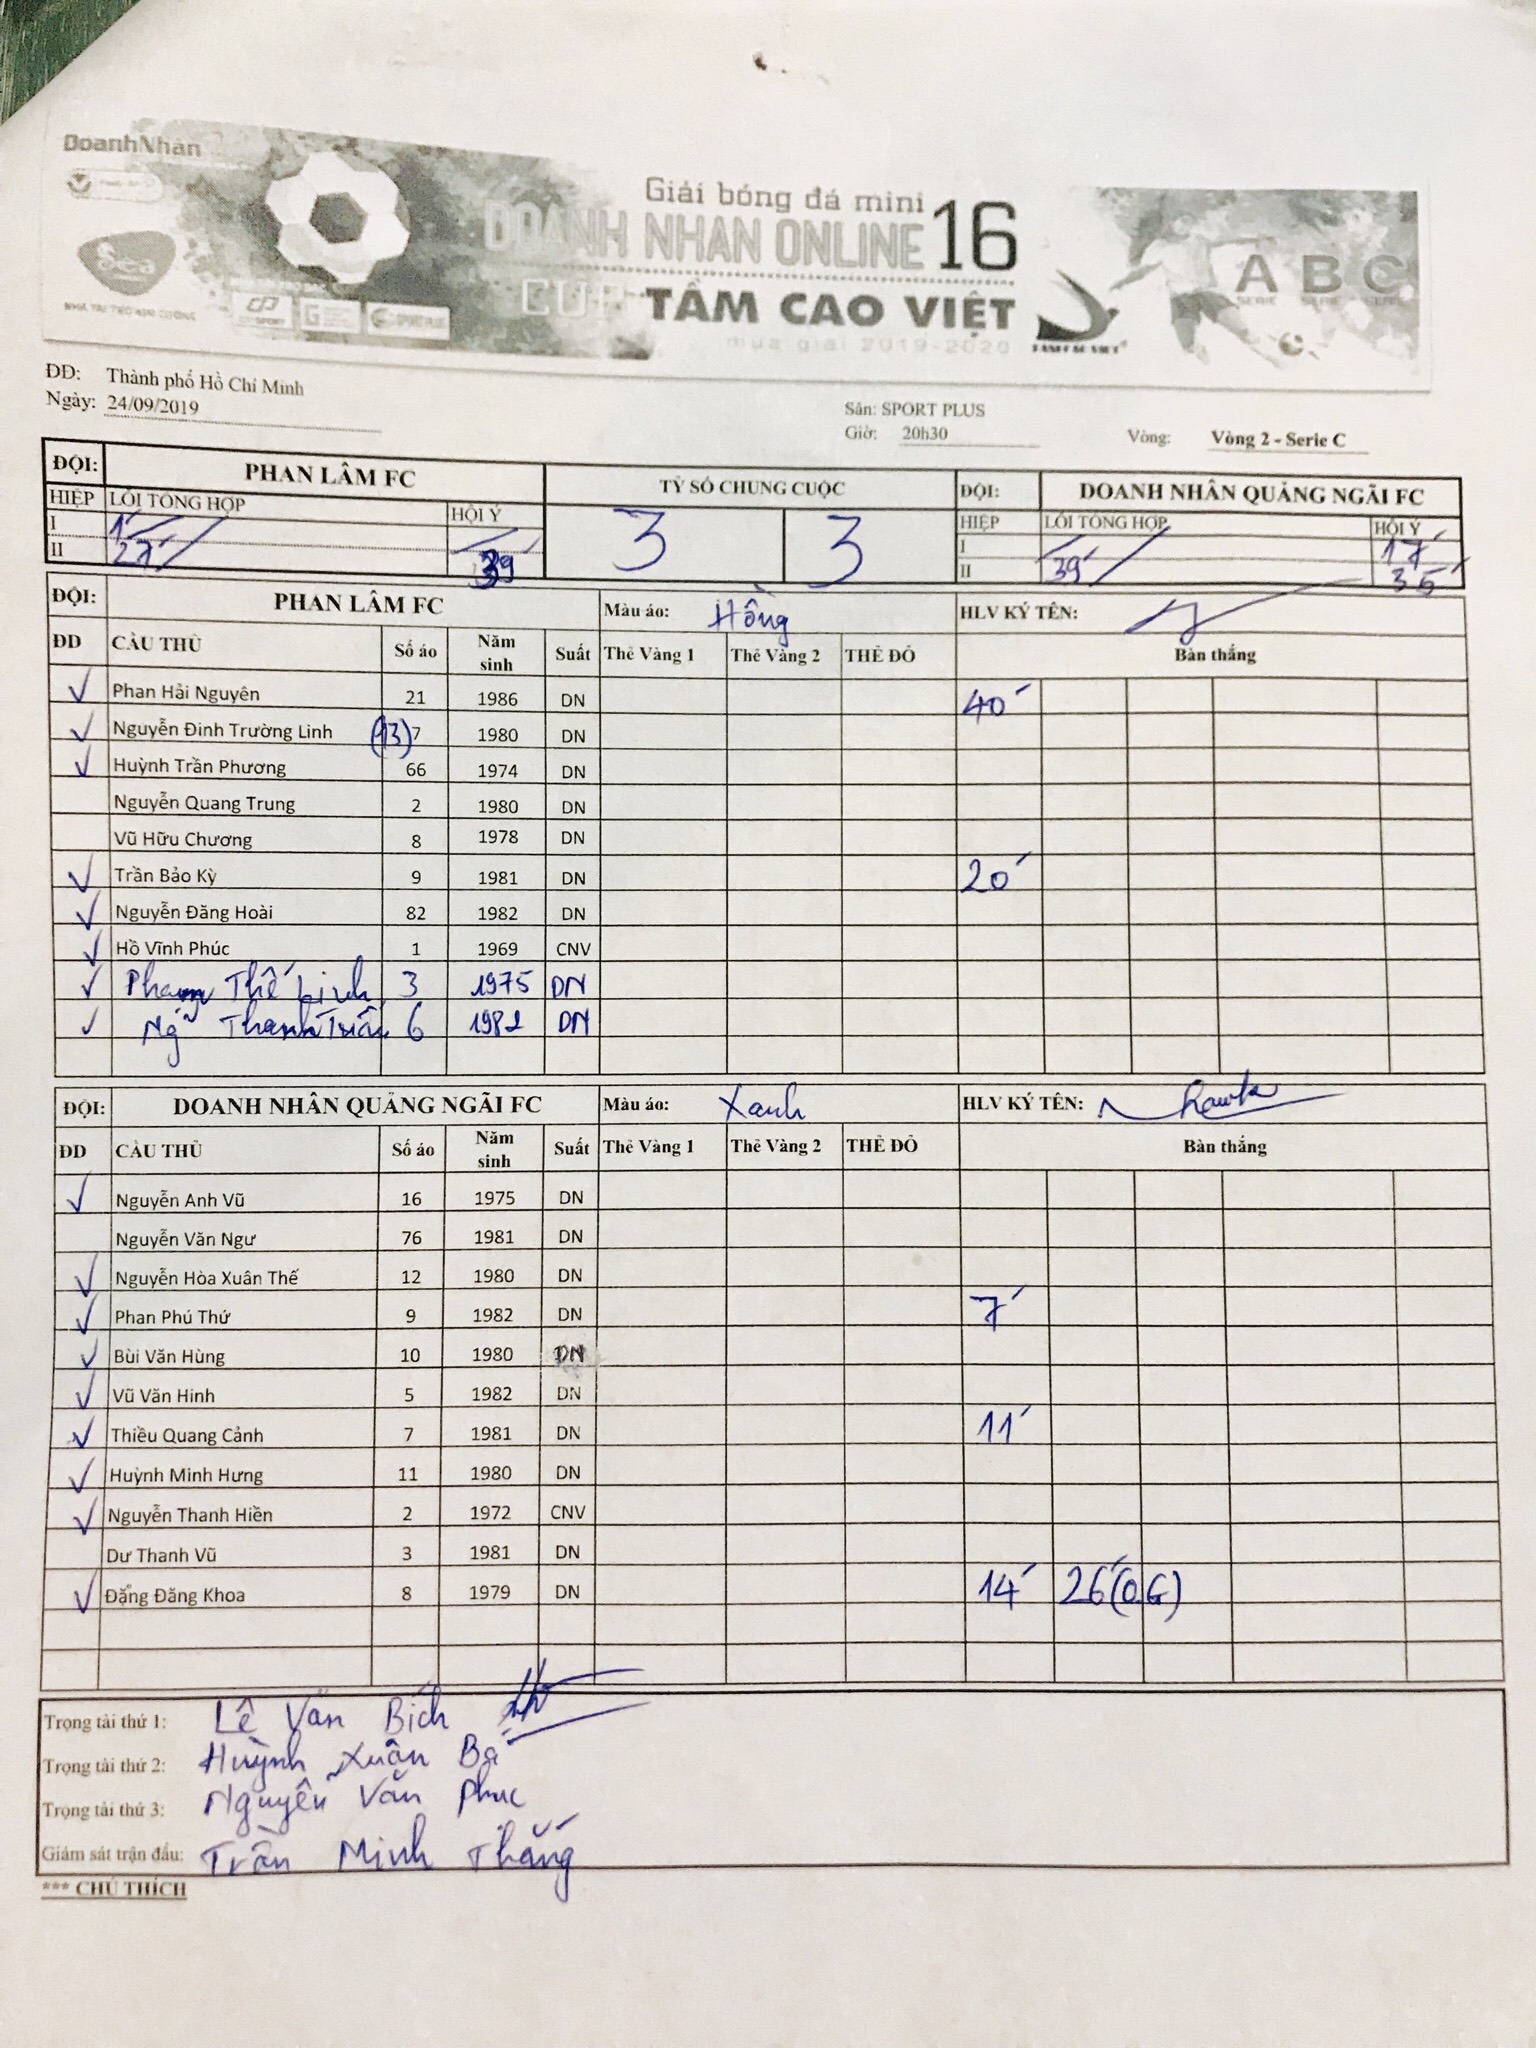 DoanhNhân
Giải bóng đá mini
DOANH NHÂN ONLINE 16
CUP TẦM CAO VIỆT
mùa giải 2019-2020
A B C
SERIE SERIE
NHÀ TÀI TRỢ KIM CƯƠNG
SPORT PLUS
ĐĐ: Thành phố Hồ Chí Minh
Ngày: 24/09/2019
Sân: SPORT PLUS
Giờ: 20h30 Vòng: Vòng 2 - Serie C
ĐỘI: PHAN LÂM FC TỶ SỐ CHUNG CUỘC ĐỘI: DOANH NHÂN QUẢNG NGÃI FC
HIỆP LỖI TỔNG HỢP HỘI Ý 3 3 HIỆP LỖI TỔNG HỢP HỘI Ý
I 1' I 17'
II 27' 39' II 39' 35'
ĐỘI: PHAN LÂM FC Màu áo: Hồng HLV KÝ TÊN:
ĐD CẦU THỦ Số áo Năm sinh Suất Thẻ Vàng 1 Thẻ Vàng 2 THẺ ĐỎ Bàn thắng
✓ Phan Hải Nguyên 21 1986 DN 40'
✓ Nguyễn Đình Trường Linh (13) 7 1980 DN
✓ Huỳnh Trần Phương 66 1974 DN
Nguyễn Quang Trung 2 1980 DN
Vũ Hữu Chương 8 1978 DN
✓ Trần Bảo Kỳ 9 1981 DN 20'
✓ Nguyễn Đăng Hoài 82 1982 DN
✓ Hồ Vĩnh Phúc 1 1969 CNV
✓ Phạm Thế Linh 3 1975 DN
✓ Ng Thanh Tuấn 6 1982 DN
ĐỘI: DOANH NHÂN QUẢNG NGÃI FC Màu áo: Xanh HLV KÝ TÊN:
ĐD CẦU THỦ Số áo Năm sinh Suất Thẻ Vàng 1 Thẻ Vàng 2 THẺ ĐỎ Bàn thắng
✓ Nguyễn Anh Vũ 16 1975 DN
Nguyễn Văn Ngư 76 1981 DN
✓ Nguyễn Hòa Xuân Thế 12 1980 DN
✓ Phan Phú Thứ 9 1982 DN 7'
✓ Bùi Văn Hùng 10 1980 DN
✓ Vũ Văn Hinh 5 1982 DN
✓ Thiều Quang Cảnh 7 1981 DN 11'
✓ Huỳnh Minh Hưng 11 1980 DN
✓ Nguyễn Thanh Hiền 2 1972 CNV
Dư Thanh Vũ 3 1981 DN
✓ Đặng Đăng Khoa 8 1979 DN 14' 26' (O.G)
Trọng tài thứ 1: Lê Văn Bích
Trọng tài thứ 2: Huỳnh Xuân Ba
Trọng tài thứ 3: Nguyễn Văn Phuc
Giám sát trận đấu: Trần Minh Thắng
*** CHÚ THÍCH